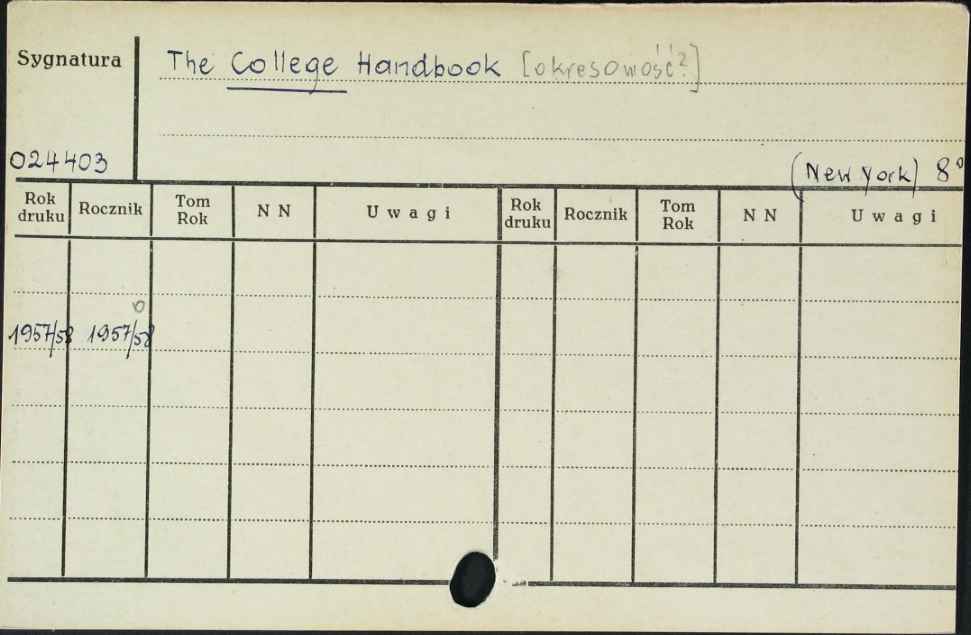 Sygnatura
The College Handbook [okresowość?]
024403
(New York) 8°
Rok druku Rocznik Tom Rok N N Uwagi Rok druku Rocznik Tom Rok N N Uwagi
o
1957/58 1957/58